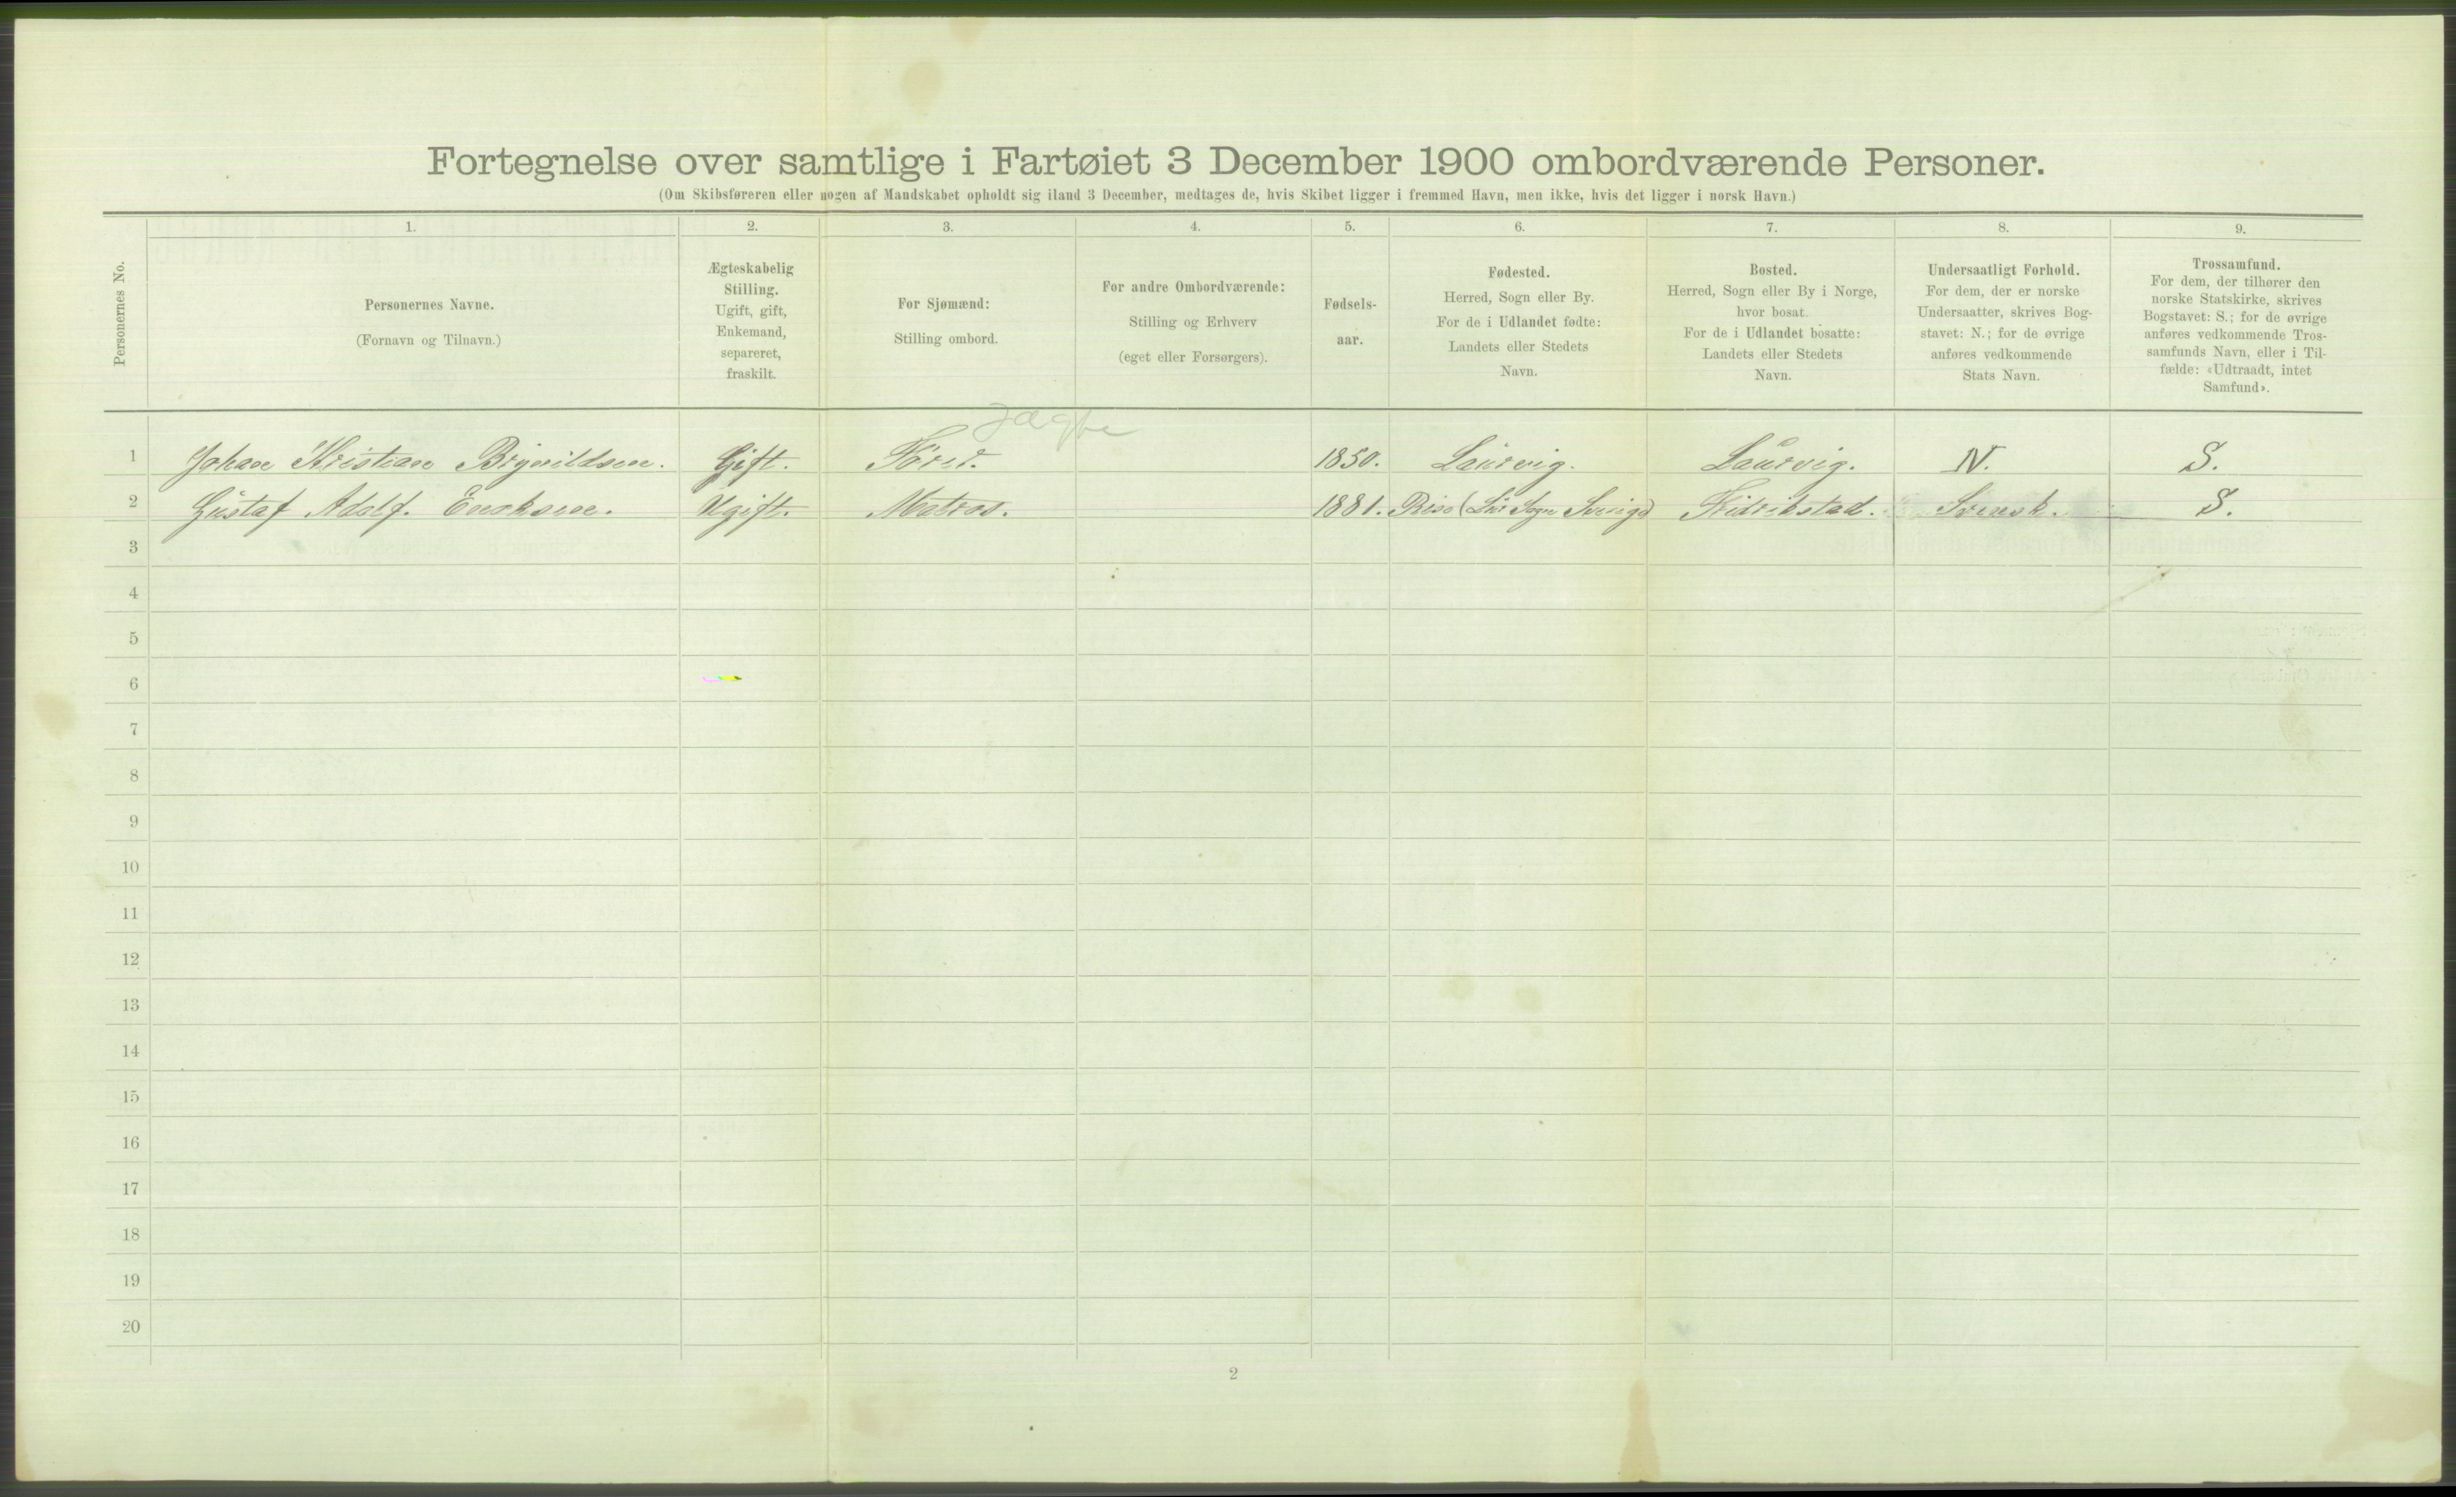 Fortegnelse over samtlige i Fartøiet 3 December 1900 ombordværende Personer.
(Om Skibsføreren eller nogen af Mandskabet opholdt sig iland 3 December, medtages de, hvis Skibet ligger i fremmed Havn, men ikke, hvis det ligger i norsk Havn.)
Personernes No.
1.
Personernes Navne.
(Fornavn og Tilnavn.)
2.
Ægteskabelig
Stilling.
Ugift, gift,
Enkemand,
separeret,
fraskilt.
3.
For Sjømænd:
Stilling ombord.
4.
For andre Ombordværende:
Stilling og Erhverv
(eget eller Forsørgers).
5.
Fødsels-
aar.
6.
Fødested.
Herred, Sogn eller By.
For de i Udlandet fødte:
Landets eller Stedets
Navn.
7.
Bosted.
Herred, Sogn eller By i Norge,
hvor bosat.
For de i Udlandet bosatte:
Landets eller Stedets
Navn.
8.
Undersaatligt Forhold.
For dem, der er norske
Undersaatter, skrives Bog-
stavet: N.; for de øvrige
anføres vedkommende
Stats Navn.
9.
Trossamfund.
For dem, der tilhører den
norske Statskirke, skrives
Bogstavet: S.; for de øvrige
anføres vedkommende Tros-
samfunds Navn, eller i Til-
fælde: «Udtraadt, intet
Samfund».
1 Johan Kristian Brynildsen. Gift. 1850. Laurvig. Laurvig. N. S.
2 Gustaf Adolf. Enoksen. Ugift. Matros. 1881. Fridrikstad. Svensk. S.
3
4
5
6
7
8
9
10
11
12
13
14
15
16
17
18
19
20
2